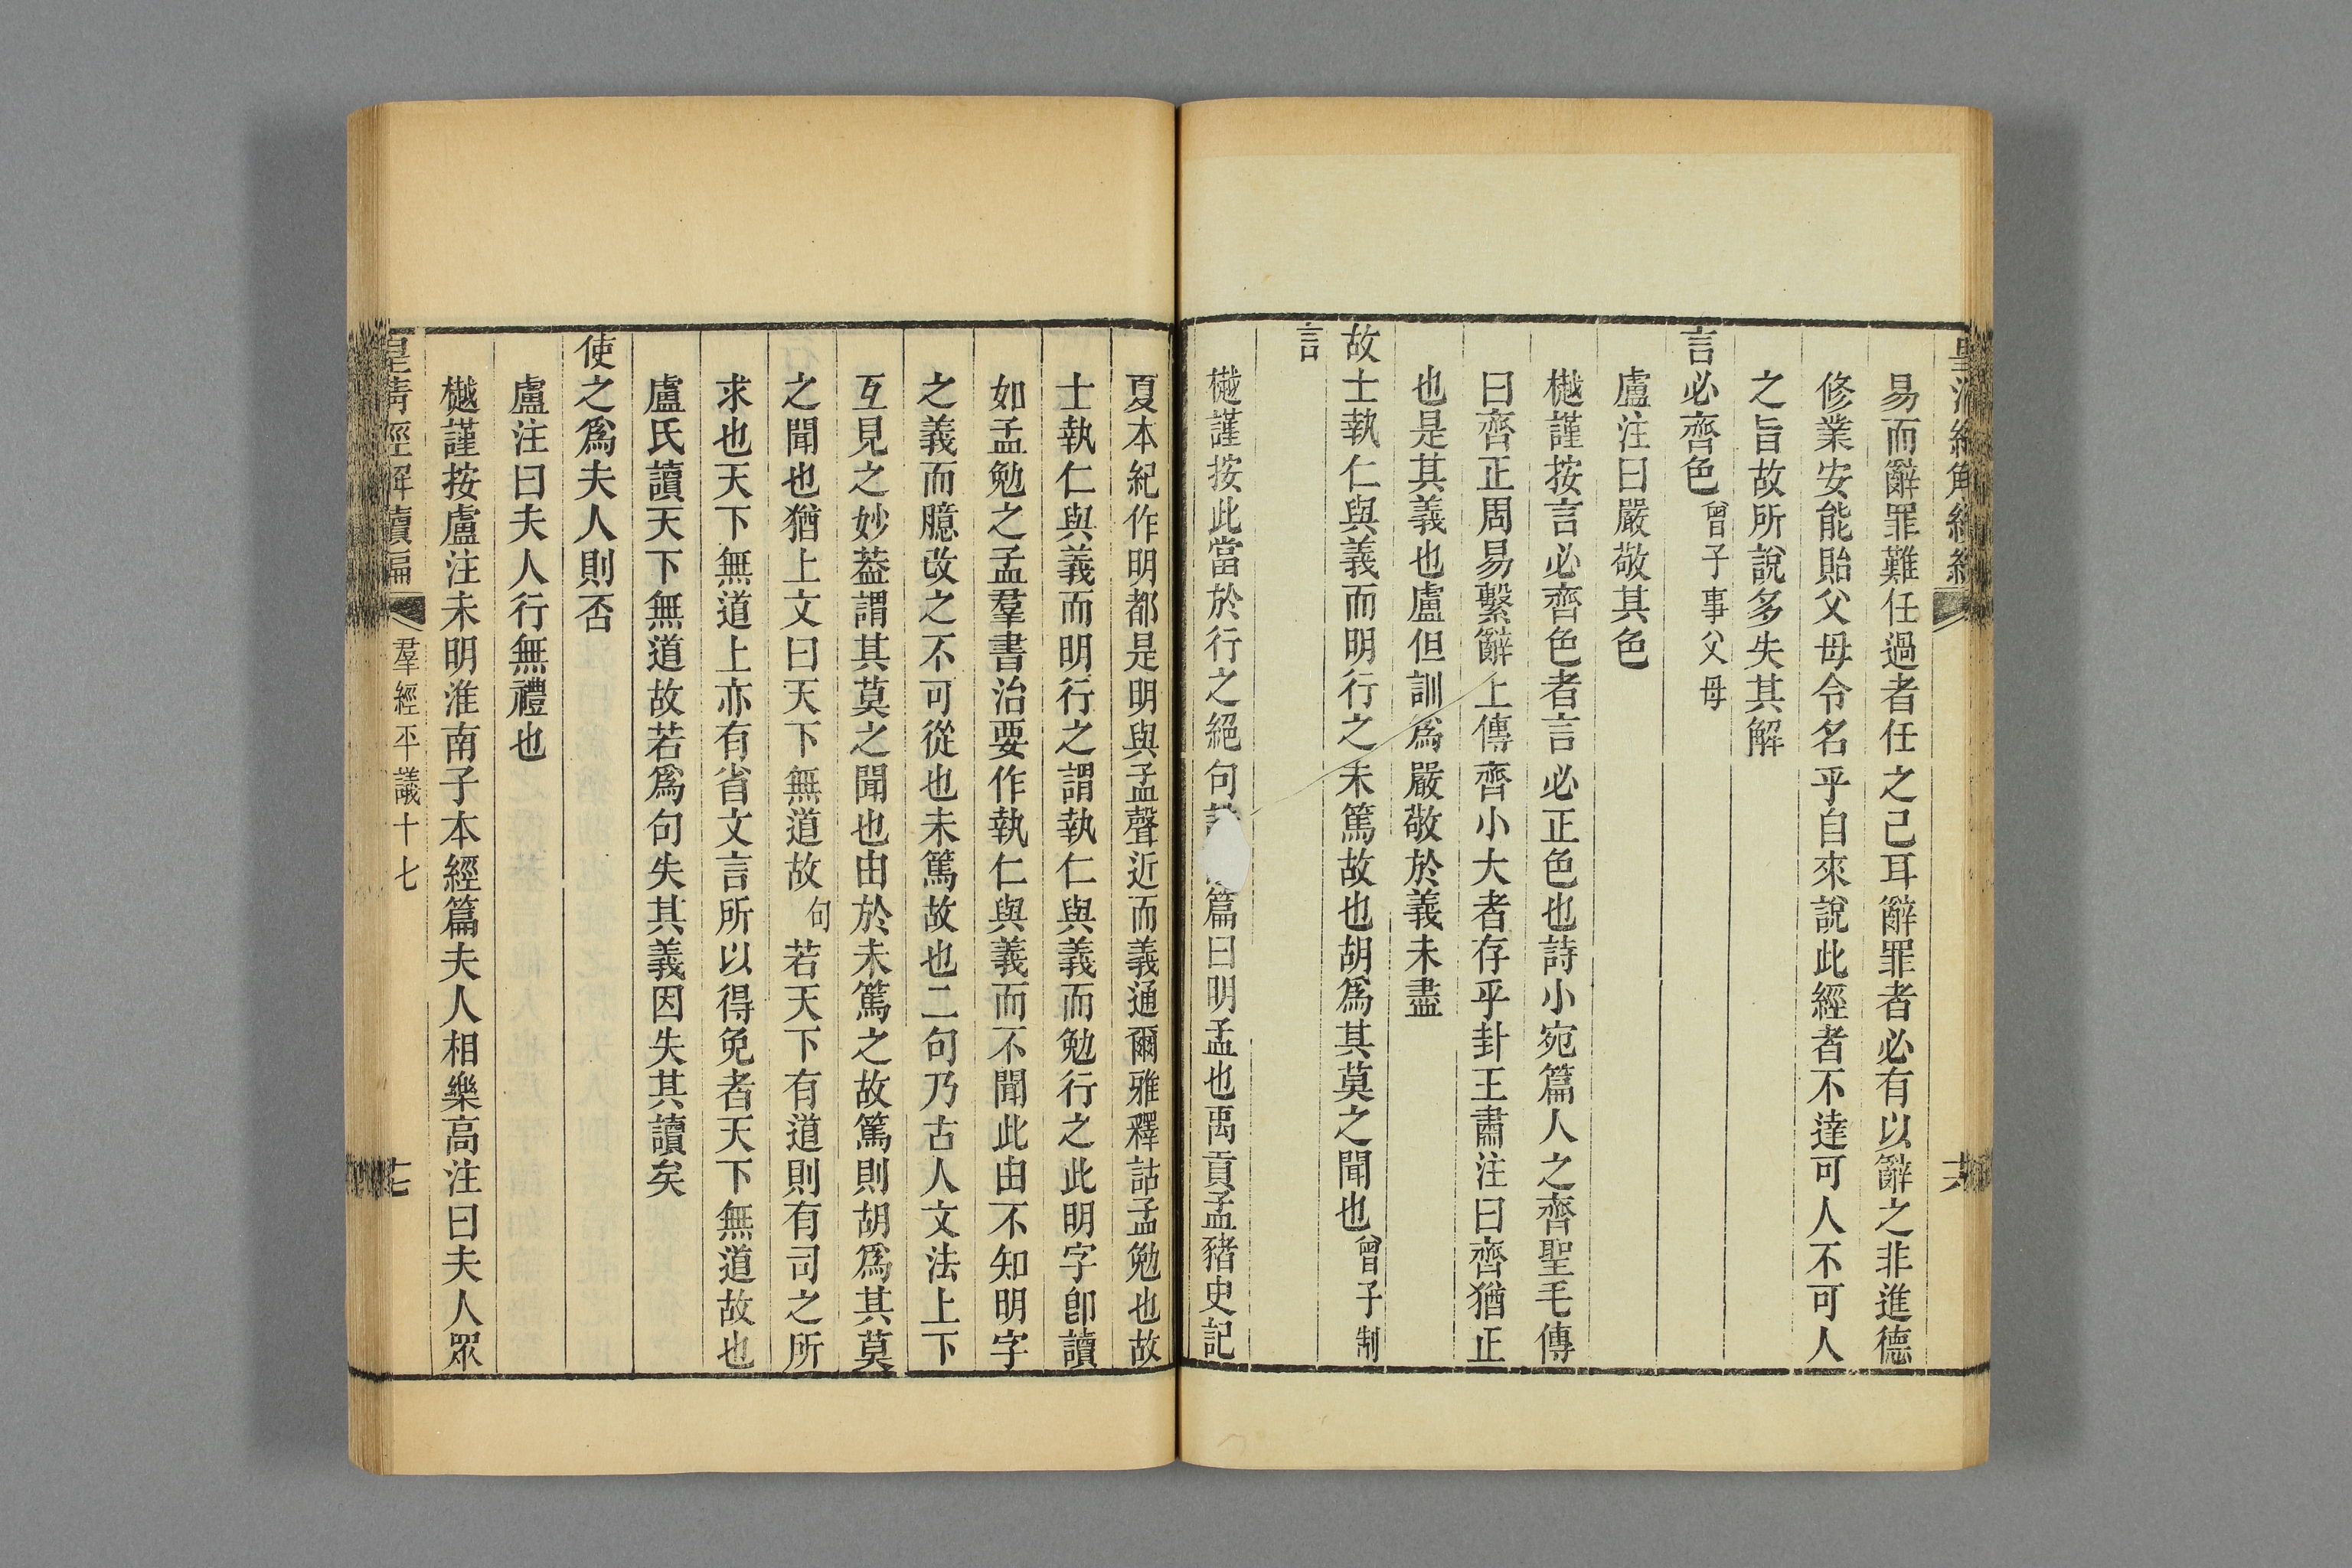 易而辭罪難任過者任之己耳辭罪者必有以辭之非進德
修業安能貽父母令名乎自來說此經者不達可人不可人
之旨故所說多失其解
言必齊色曾子事父母
盧注曰嚴敬其色
樾謹按言必齊色者言必正色也詩小宛篇人之齊聖毛傳
曰齊正周易繫辭上傳齊小大者存乎卦王肅注曰齊猶正
也是其義也盧但訓爲嚴敬於義未盡
故士執仁與義而明行之未篤故也胡爲其莫之聞也曾子制
言
樾謹按此當於行之絕句篇曰明孟也禹貢孟豬史記
夏本紀作明都是明與孟聲近而義通爾雅釋詁孟勉也故
士執仁與義而明行之謂執仁與義而勉行之此明字卽讀
如孟勉之孟羣書治要作執仁與義而不聞此由不知明字
之義而臆改之不可從也未篤故也二句乃古人文法上下
互見之妙葢謂其莫之聞也由於未篤之故篤則胡爲其莫
之聞也猶上文曰天下無道故句若天下有道則有司之所
求也天下無道上亦有省文言所以得免者天下無道故也
盧氏讀天下無道故若爲句失其義因失其讀矣
使之爲夫人則否
盧注曰夫人行無禮也
樾謹按盧注未明淮南子本經篇夫人相樂高注曰夫人眾
皇淸經解續編 羣經平議十七 七